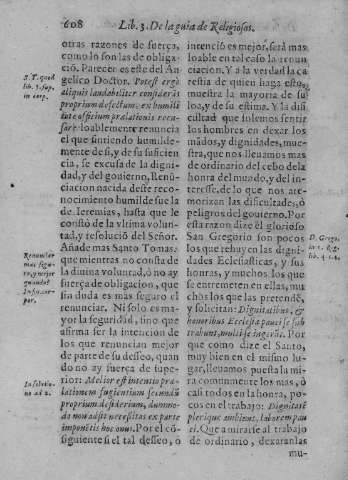 608 Lib. 3. De la guia de Religiosos.
otras razones de fuerça,
como lo son las de obliga-
ció. Parecer es este del An-
gelico Doctor. Potest ergo
aliquis laudabiliter considerãs
proprium defectum, ex humili
tate officium prælationis recu-
sare. loablemente renuncia
el que sintiendo humilde-
mente de si, y de su suficien
cia, se escusa de la digni-
dad, y del gouierno. Renũ-
ciacion nacida deste reco-
nocimiento humilde fue la
de Ieremias, hasta que le
constò de la vltima volun-
tad, y resolució del Señor.
Añade mas Santo Tomas,
que mientras no consta de
la diuina voluntad, ò no ay
fuerça de obligacion, que
sin duda es mas seguro el
renunciar. Ni solo es ma-
yor la seguridad, sino que
afirma ser la intencion de
los que renuncian mejor
de parte de su desseo, quan
do no ay fuerça de supe-
rior: Melior est intentio præ-
lationem fugientium secundũ
proprium desiderium, dummo-
do non adsit necessitas ex parte
imponētis hoc onus. Por el cõ-
siguiente si el tal desseo, ò
S. T. quod
lib. 5. sup.
in corp.
Renunciar
mas segu-
ro, y mejor
quando?
In solutio
ne ad 2.
intenció es mejor, será mas
loable en tal caso la renun
ciacion. Y a la verdad la ca
restia de quien haga esto,
muestra la mayoria de su
loa, y de su estima. Y la difi
cultad que solemos sentir
los hombres en dexar los
mãdos, y dignidades, mue-
stra, que nos lleuamos mas
de ordinario del cebo de la
honra del mundo, y del in-
teresse, de lo que nos ate-
morizan las dificultades, ò
peligros del gouierno. Por
esta razon dize el glorioso
San Gregorio son pocos
los que rehuyen las digni-
dades Eclesiasticas, y sus
honras, y muchos los que
se entremeten en ellas, mu
chos los que las pretendẽ,
y solicitan: Dignitatibus, &
honoribus Ecclesiæ pauci se sub
trahunt, multi se ingerũt. Por
que como dize el Santo,
muy bien en el mismo lu-
gar, lleuamos puesta la mi
ra comunmente los mas, ò
casi todos en la honra, po-
cos en el trabajo: Dignitatē
plerique ambiunt, laborem pau
ci. Que a mirarse al trabajo
de ordinario, dexaranlas
D. Grego.
lib. 4. c. 8.
mu-